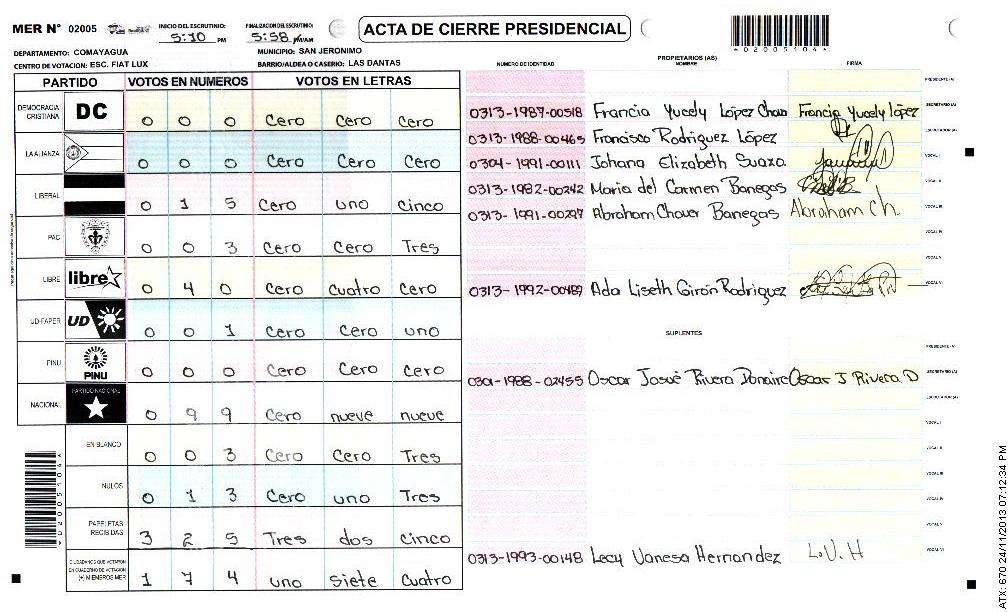 MER N° 02005
INICIO DEL ESCRUTINIO: 5:10 PM
FINALIZACION DEL ESCRUTINIO: 5:58 PM/AM
ACTA DE CIERRE PRESIDENCIAL
*02005104*
DEPARTAMENTO: COMAYAGUA
MUNICIPIO: SAN JERONIMO
CENTRO DE VOTACION: ESC. FIAT LUX
BARRIO/ALDEA O CASERIO: LAS DANTAS
PARTIDO VOTOS EN NUMEROS VOTOS EN LETRAS
DEMOCRACIA CRISTIANA DC 0 0 0 Cero Cero Cero
LA ALIANZA 0 0 0 Cero Cero Cero
LIBERAL 0 1 5 Cero uno cinco
PAC 0 0 3 Cero Cero Tres
LIBRE libre 0 4 0 Cero cuatro Cero
UD-FAPER UD 0 0 1 Cero Cero uno
PINU PINU 0 0 0 Cero Cero Cero
NACIONAL PARTIDO NACIONAL 0 9 9 Cero nueve nueve
EN BLANCO 0 0 3 Cero Cero Tres
NULOS 0 1 3 Cero uno Tres
PAPELETAS RECIBIDAS 3 2 5 Tres dos cinco
CIUDADANOS QUE VOTARON EN CUADERNO DE VOTACION (+) MIEMBROS MER 1 7 4 uno siete cuatro
*02005104*
PROPIETARIOS (AS)
NUMERO DE IDENTIDAD NOMBRE FIRMA
PRESIDENTE (A)
0313-1987-00518 Francia Yucely López Chav Francia Yucely López SECRETARIO (A)
0313-1988-00465 Francisco Rodriguez López ESCRUTADOR (A)
0304-1991-00111 Johana Elizabeth Suaza VOCAL I
0313-1982-00242 Maria del Carmen Banegas VOCAL II
0313-1991-00297 Abraham Chaver Banegas Abraham Ch. VOCAL III
VOCAL IV
VOCAL V
0313-1992-00489 Ada Liseth Girón Rodriguez VOCAL VI
SUPLENTES
PRESIDENTE (A)
0301-1988-02455 Oscar Josué Rivera Donaire Oscar J Rivera D SECRETARIO (A)
ESCRUTADOR (A)
VOCAL I
VOCAL II
VOCAL III
VOCAL IV
VOCAL V
0313-1993-00148 Lecy Vanesa Hernandez L.V.H VOCAL VI
ATX: 670 24/11/2013 07:12:34 PM